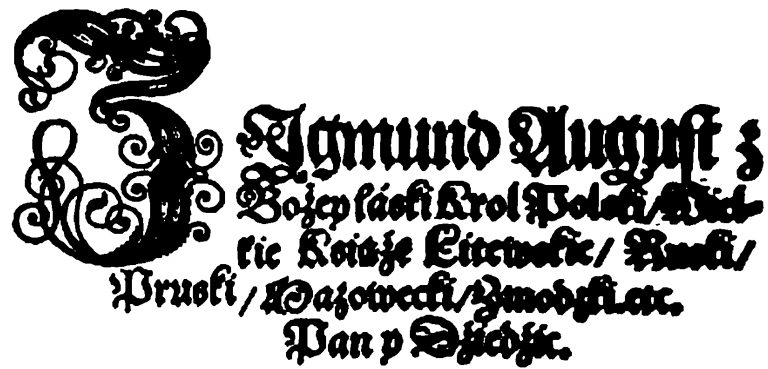 ZJgmund August z
Bożey łáski Krol Polski/Wiel-
kie Ksiaże Litewskie/ Ruski/
Pruski/Mazowecki/Zmodzki.etc.
Pan y Dźiedźic.